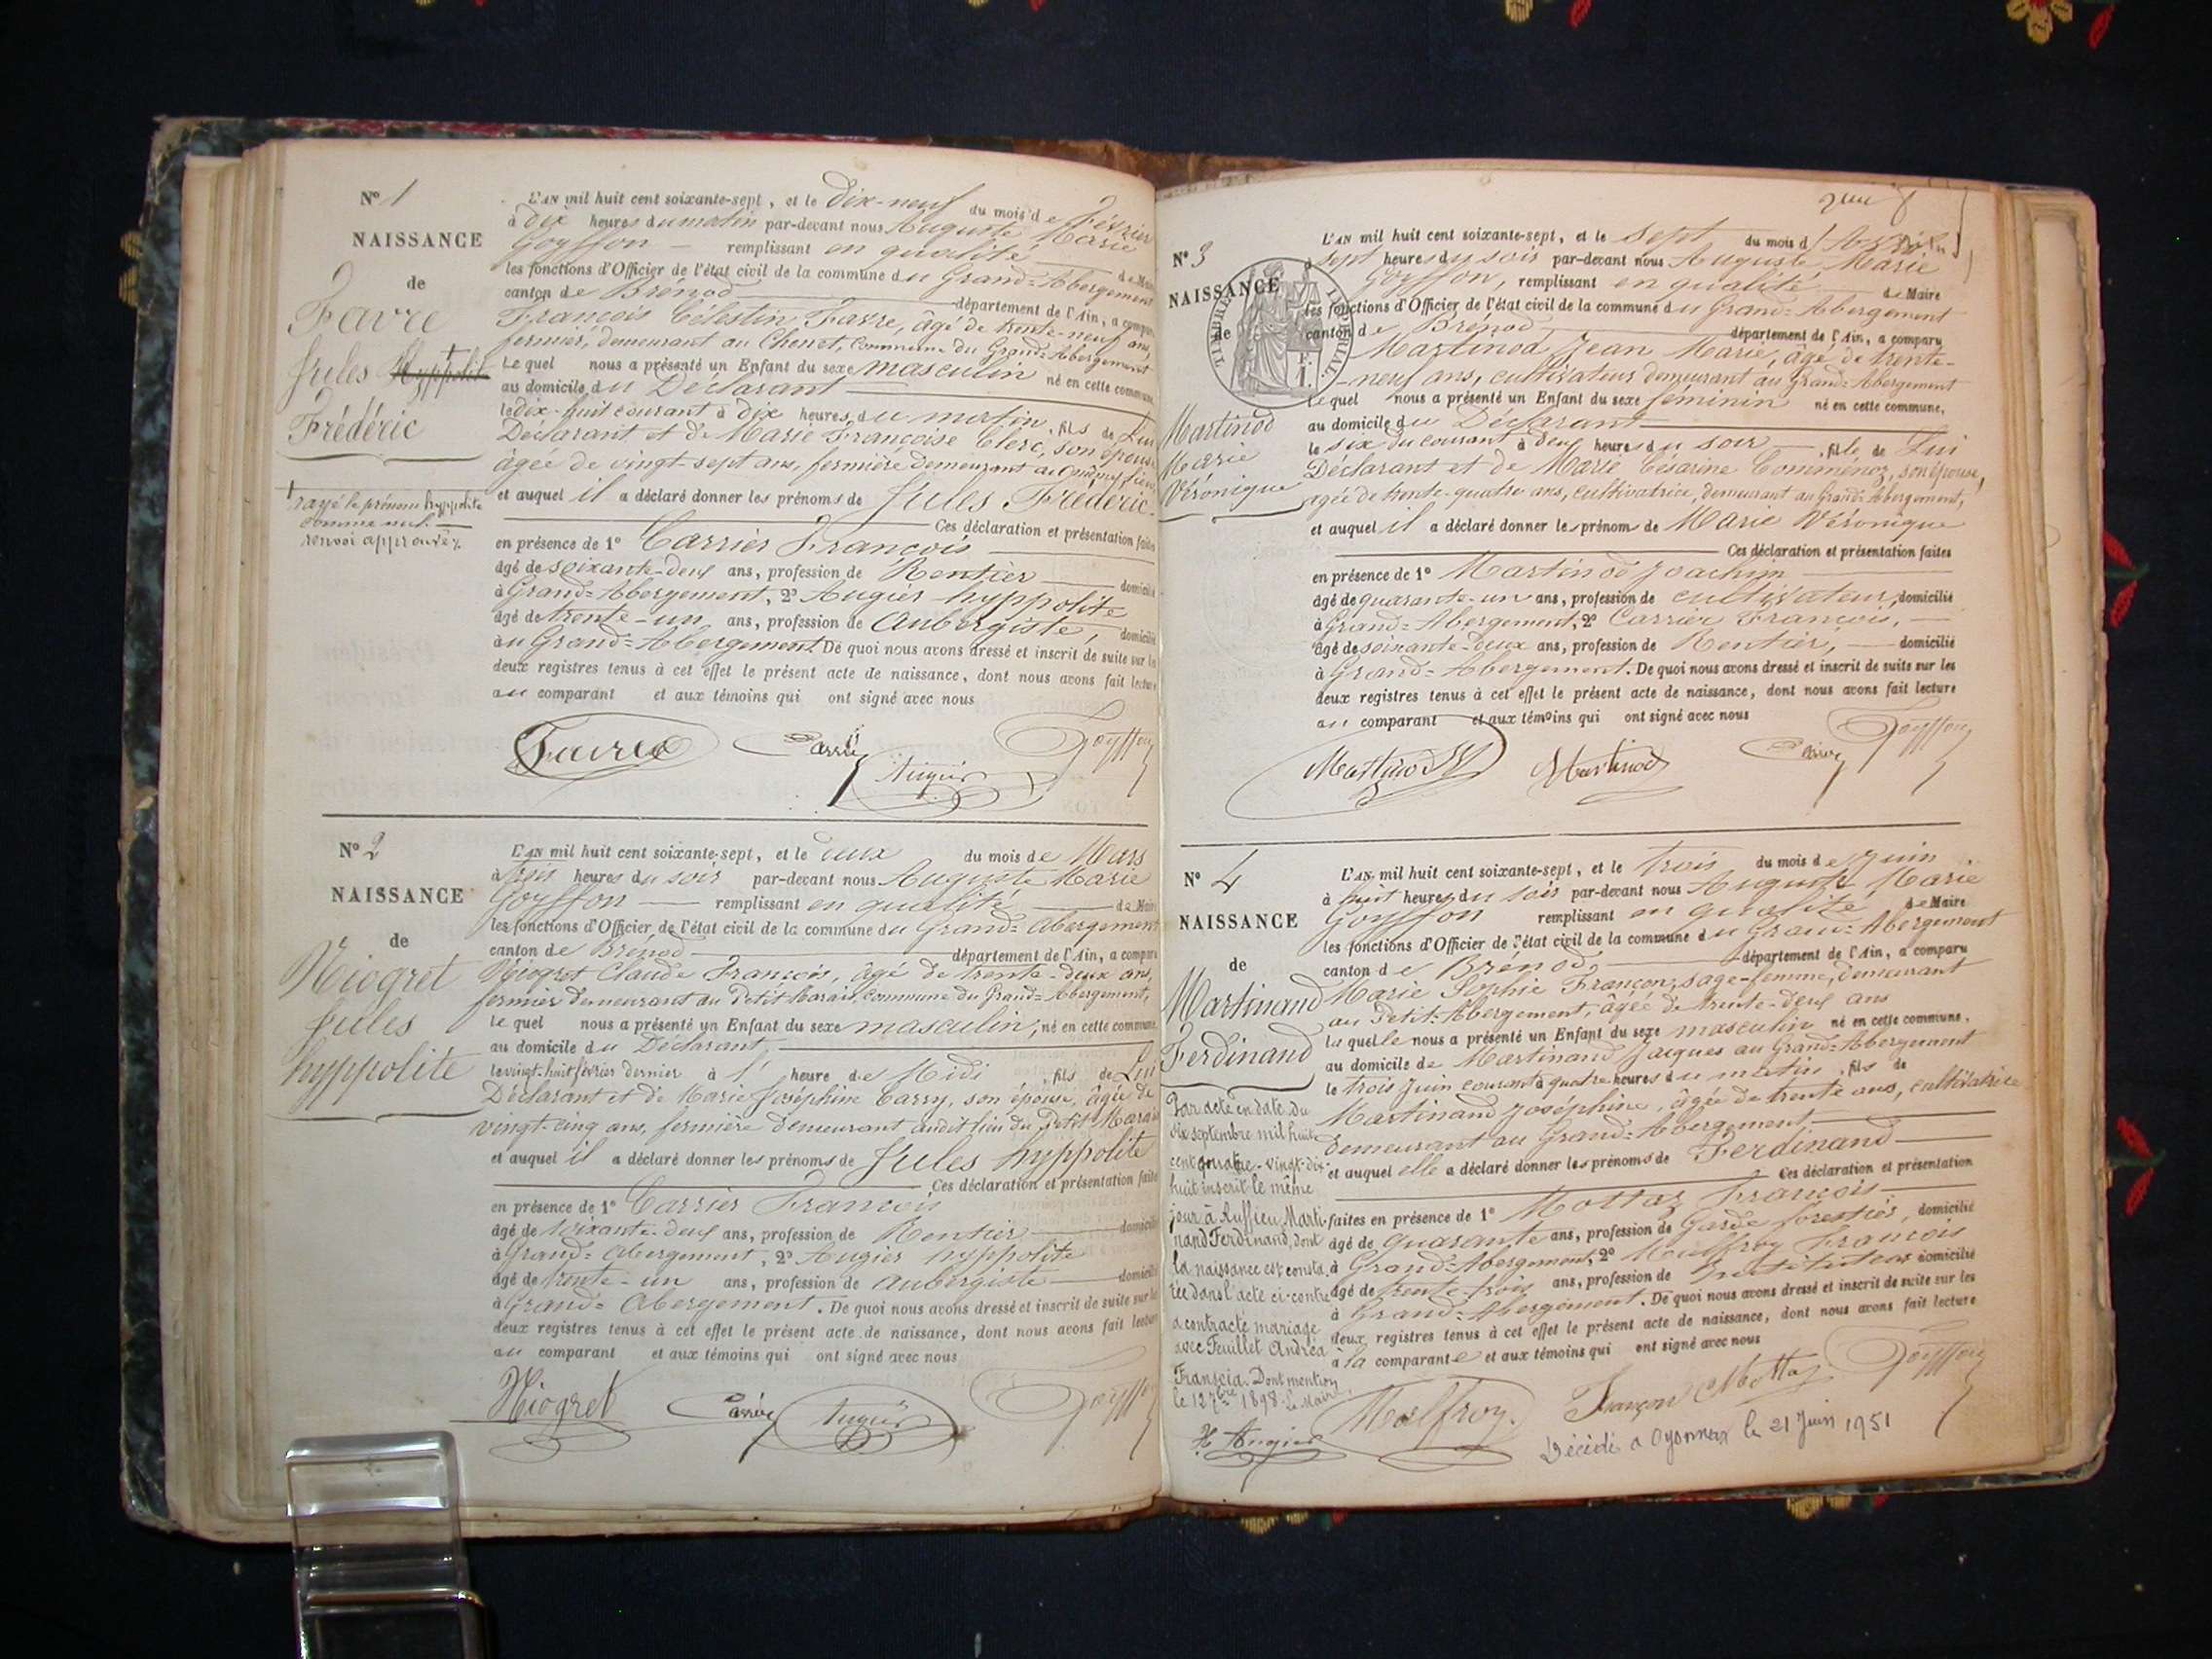 N° 1
NAISSANCE
de
Favre
Jules Hyppolit
Frédéric
rayé le prénom hyppolite
comme nul.
renvoi approuvé
L'AN mil huit cent soixante-sept, et le Dix-neuf du mois de Février
à dix heures du matin par-devant nous Auguste Marie
Goyffon remplissant en qualité de Maire
les fonctions d'Officier de l'état civil de la commune du Grand-Abergement
canton de Brénod département de l'Ain, a comparu
François Célestin Favre, âgé de trente-neuf ans,
fermier, demeurant au Chenet, commune du Grand-Abergement
Le quel nous a présenté un Enfant du sexe masculin né en cette commune,
au domicile du Déclarant
le dix-huit courant à dix heures du matin, fils de Lui
Déclarant et de Marie Françoise Clerc, son épouse
âgée de vingt-sept ans, fermière demeurant au même lieu
et auquel il a déclaré donner les prénoms de Jules Frédéric
Ces déclaration et présentation faites
en présence de 1° Carrier François
âgé de soixante-deux ans, profession de Rentier domicilié
à Grand-Abergement, 2° Augier hyppolite
âgé de trente-un ans, profession de Aubergiste, domicilié
au Grand-Abergement. De quoi nous avons dressé et inscrit de suite sur les
deux registres tenus à cet effet le présent acte de naissance, dont nous avons fait lecture
au comparant et aux témoins qui ont signé avec nous
Favre Carrier Goyffon
Augier
N° 2
NAISSANCE
de
Niogret
Jules
hyppolite
L'AN mil huit cent soixante-sept, et le deux du mois de Mars
à trois heures du soir par-devant nous Auguste Marie
Goyffon remplissant en qualité de Maire
les fonctions d'Officier de l'état civil de la commune du Grand-Abergement
canton de Brénod département de l'Ain, a comparu
Niogret Claude François, âgé de trente-deux ans,
fermier demeurant au Petit Marais, commune du Grand-Abergement,
Le quel nous a présenté un Enfant du sexe masculin, né en cette commune
au domicile du Déclarant,
le vingt-huit février dernier à l' heure de Midi, fils de Lui
Déclarant et de Marie Joséphine Carry, son épouse, âgée de
vingt-cinq ans, fermière demeurant audit lieu du Petit Marais
et auquel il a déclaré donner les prénoms de Jules hyppolite
Ces déclaration et présentation faites
en présence de 1° Carrier François
âgé de soixante-deux ans, profession de Rentier domicilié
à Grand-Abergement, 2° Augier hyppolite
âgé de trente-un ans, profession de aubergiste domicilié
à Grand-Abergement. De quoi nous avons dressé et inscrit de suite sur les
deux registres tenus à cet effet le présent acte de naissance, dont nous avons fait lecture
au comparant et aux témoins qui ont signé avec nous
Niogret Carrier Augier Goyffon
N° 3
NAISSANCE
de
Martinod
Marie
Véronique
L'AN mil huit cent soixante-sept, et le Sept du mois d'Avril
à sept heures du soir par-devant nous Auguste Marie
Goyffon, remplissant en qualité de Maire
les fonctions d'Officier de l'état civil de la commune du Grand-Abergement
canton de Brénod département de l'Ain, a comparu
Martinod Jean Marie, âgé de trente-
-neuf ans, cultivateur demeurant au Grand-Abergement
Le quel nous a présenté un Enfant du sexe féminin né en cette commune,
au domicile du Déclarant
le six du courant à deux heures du soir, fille de Lui
Déclarant et de Marie Césarine Comménoz, son épouse,
agée de trente-quatre ans, cultivatrice, demeurant au Grand-Abergement,
et auquel il a déclaré donner les prénoms de Marie Véronique
Ces déclaration et présentation faites
en présence de 1° Martinod Joachim
âgé de quarante-un ans, profession de cultivateur, domicilié
à Grand-Abergement, 2° Carrier François,
âgé de soixante-deux ans, profession de Rentier, domicilié
à Grand-Abergement. De quoi nous avons dressé et inscrit de suite sur les
deux registres tenus à cet effet le présent acte de naissance, dont nous avons fait lecture
au comparant et aux témoins qui ont signé avec nous
Martinod Martinod Carrier Goyffon
N° 4
NAISSANCE
de
Martinand
Ferdinand
Par acte en date du
six septembre mil huit
cent quatre-vingt-dix-
huit inscrit le même
jour à Ruffieu, Marti-
nand Ferdinand, dont
la naissance est consta-
tée dans l'acte ci-contre
a contracté mariage
avec Feuillet Andréa
Francia. Dont mention
le 12 7bre 1898. Le Maire,
H. Augier
L'AN mil huit cent soixante-sept, et le trois du mois de Juin
à huit heures du soir par-devant nous Auguste Marie
Goyffon remplissant en qualité de Maire
les fonctions d'Officier de l'état civil de la commune du Grand-Abergement
canton de Brénod département de l'Ain, a comparu
Marie Sophie Françon, sage-femme, demeurant
au Petit-Abergement, âgée de trente-deux ans
la quelle nous a présenté un Enfant du sexe masculin né en cette commune,
au domicile de Martinand Jacques au Grand-Abergement
le trois Juin courant à quatre heures du matin, fils de
Martinand Joséphine, âgée de trente ans, cultivatrice
demeurant au Grand-Abergement
et auquel elle a déclaré donner les prénoms de Ferdinand
Ces déclaration et présentation
faites en présence de 1° Mottaz François
âgé de quarante ans, profession de Garde forestier, domicilié
à Grand-Abergement, 2° Malfroy François
âgé de trente-trois ans, profession de Instituteur domicilié
à Grand-Abergement. De quoi nous avons dressé et inscrit de suite sur les
deux registres tenus à cet effet le présent acte de naissance, dont nous avons fait lecture
à la comparante et aux témoins qui ont signé avec nous
Malfroy. Françon Mottaz Goyffon
Décédé à Oyonnax le 21 Juin 1951